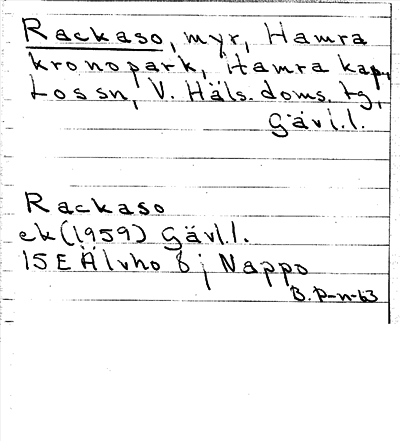 Rackaso, myr, Hamra
kronopark, Hamra kap,
Los sn, V. Häls. doms. tg,
Gävl.l.
Rackaso
ek (1959) Gävl.l.
15E Älvho 6j Nappo
B. P-n-63